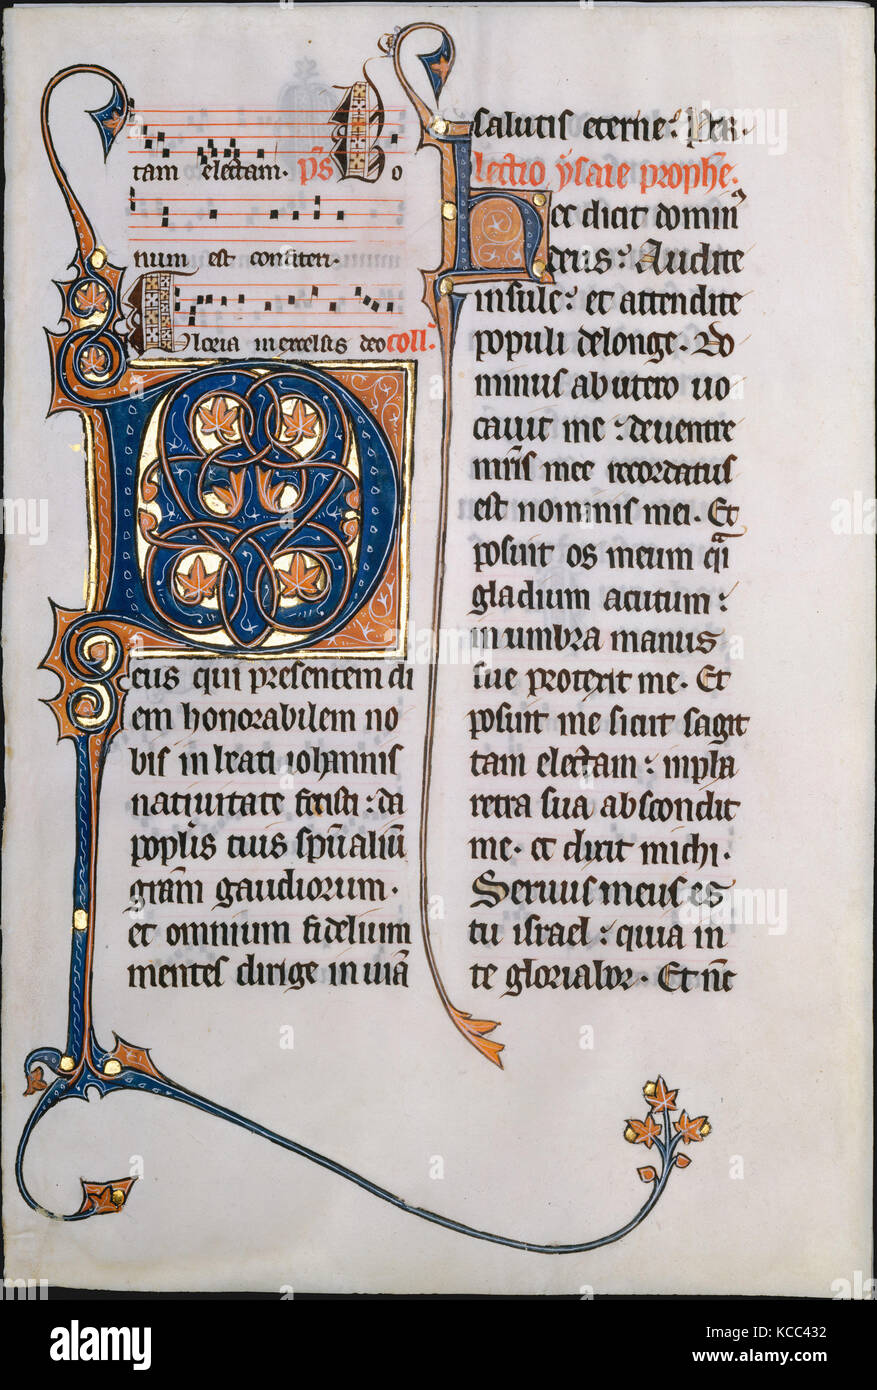 tam electam. ps Bo
num est confiteri.
Gloria in excelsis deo coll.
D
eus qui presentem di
em honorabilem no
bis in beati iohannis
natiuitate fecisti : da
poplis tuis spualium
gram gaudiorum .
et omnium fidelium
mentes dirige in uiam
salutis eterne : Per .
lectio ysaie prophe .
Hec dicit domin9
deus : Audite
insule : et attendite
populi delonge . Do
minus ab utero uo
cauit me : de uentre
mris mee recordatus
est nominis mei . Et
posuit os meum qi
gladium acutum :
in umbra manus
sue protexit me . Et
posuit me sicut sagit
tam electam : in pha
retra sua abscondit
me . et dixit michi .
Seruus meus es
tu israel : quia in
te gloriabor . Et nc
alamy
a
Image ID: KCC432
www.alamy.com